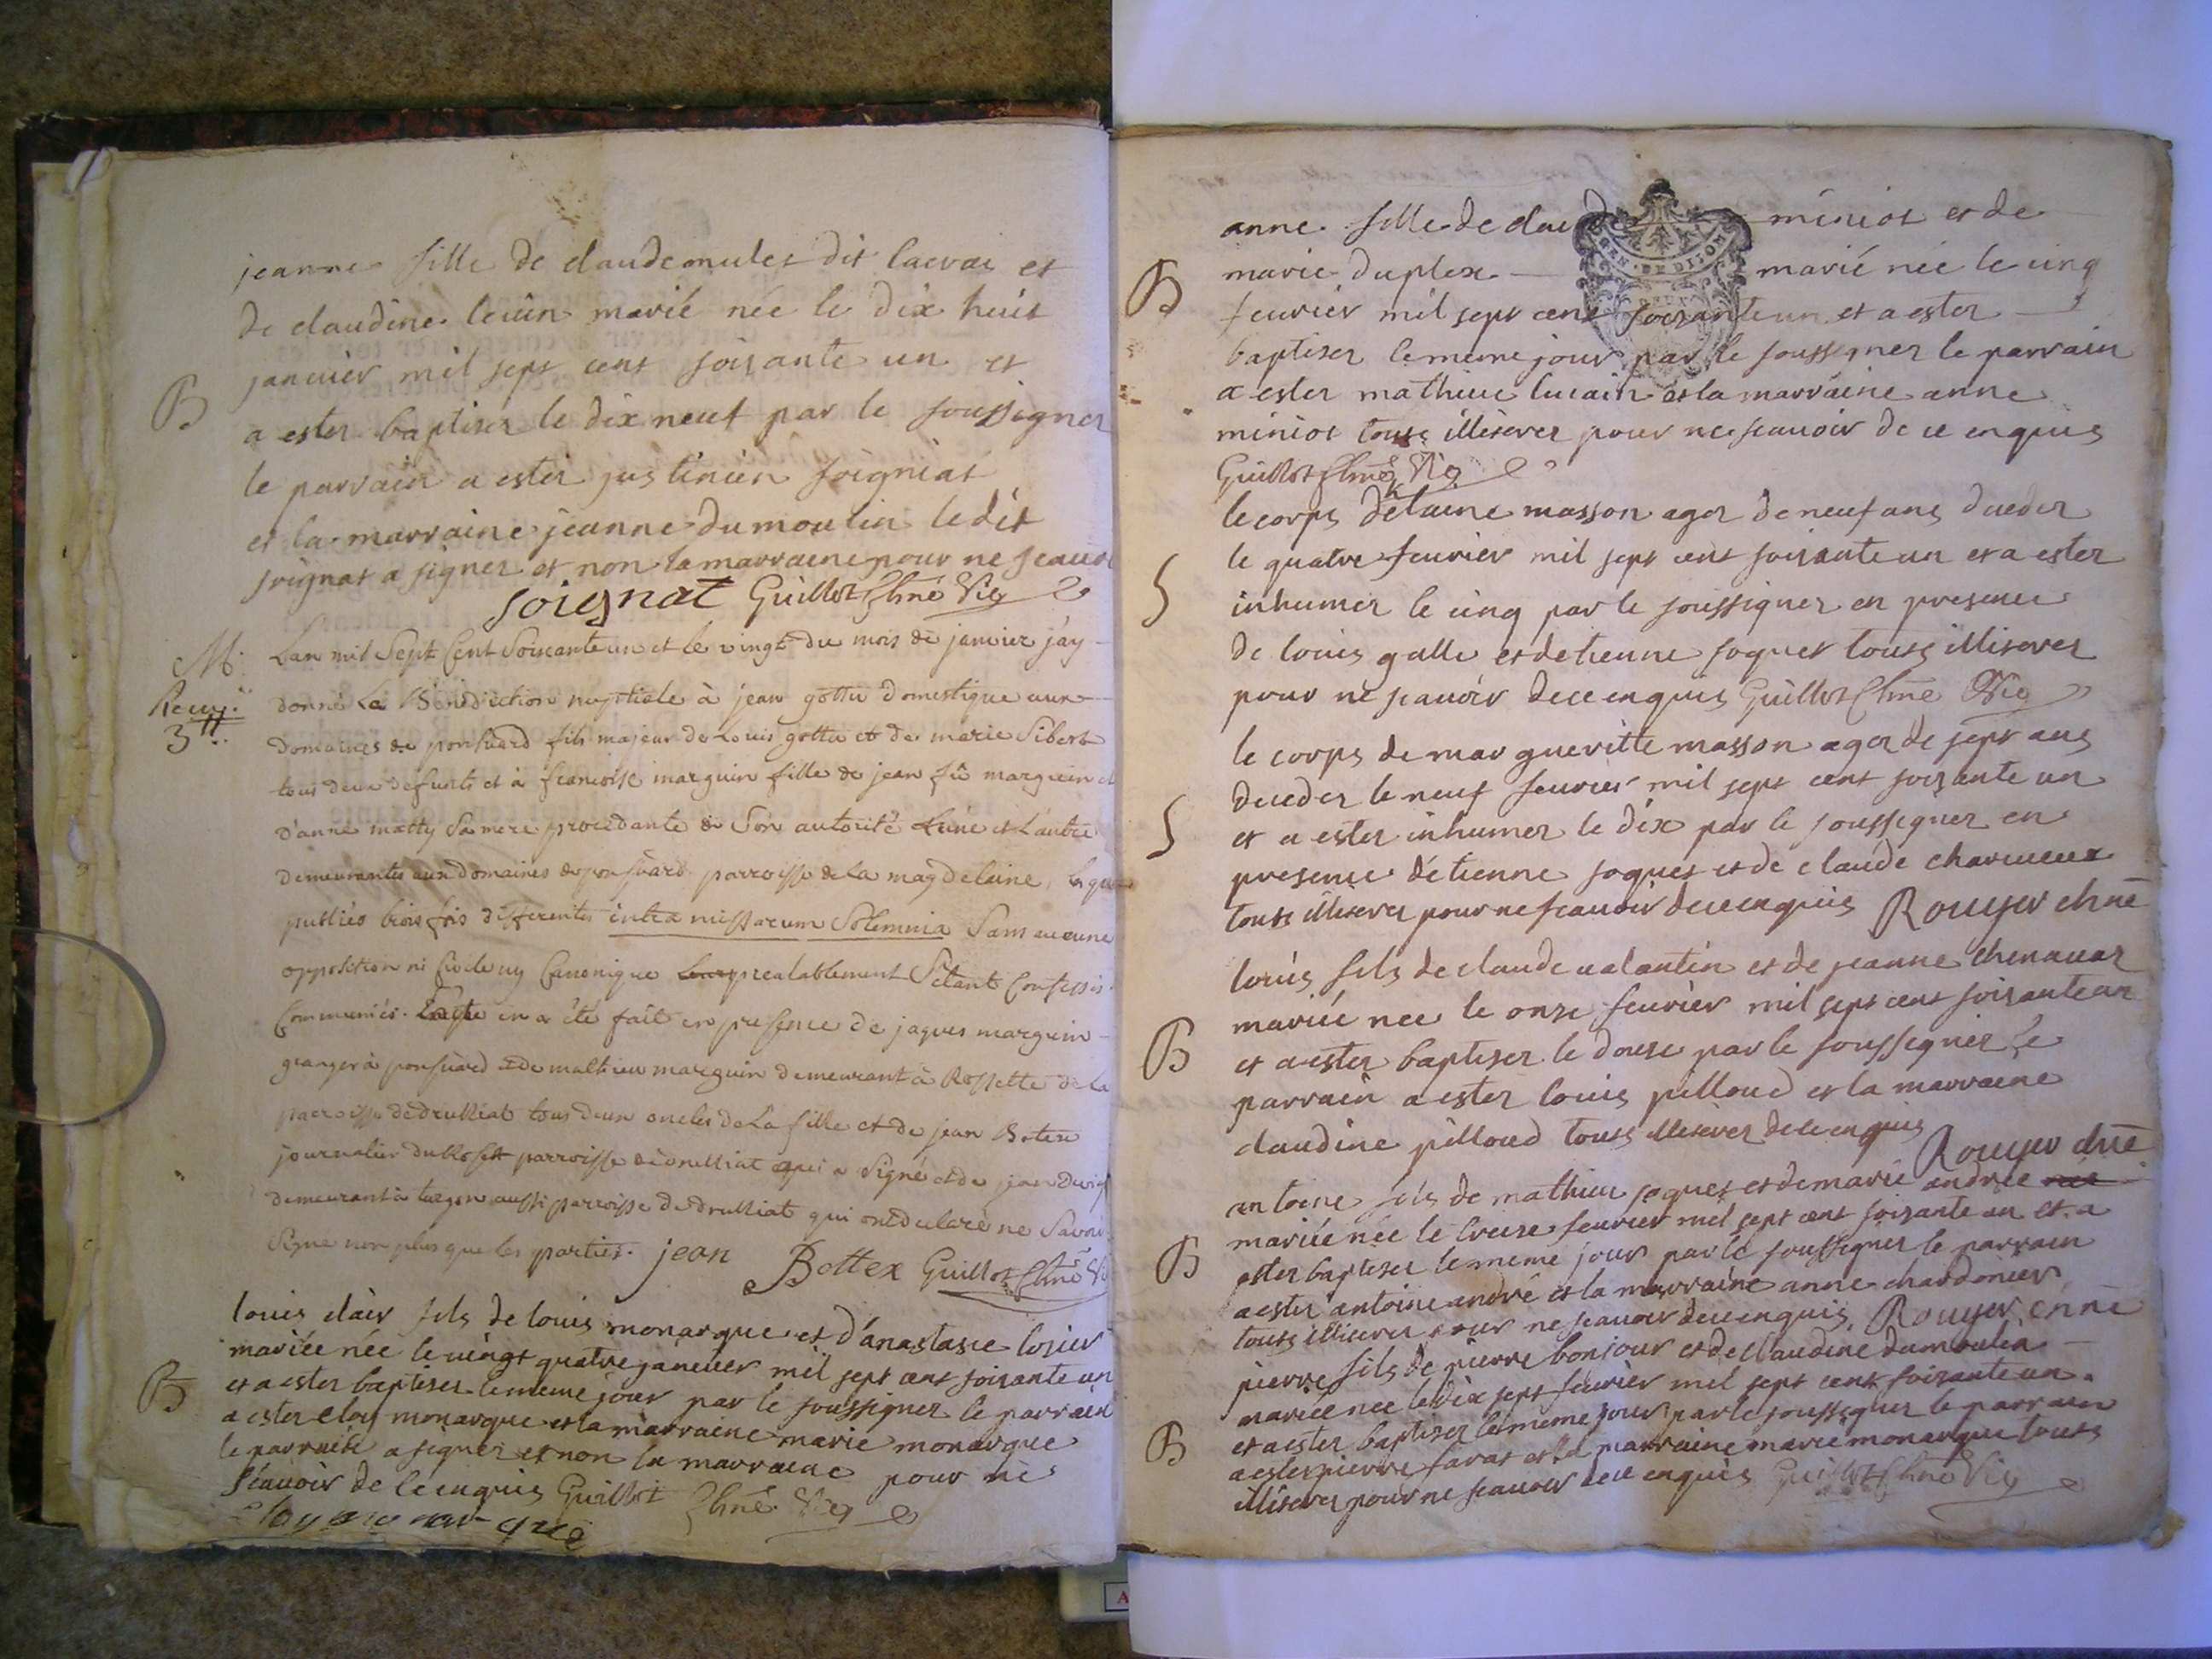 jeanne fille de claude mulet dit lacroix et
de claudine levin marié née le dix huit
janvier mil sept cent soixante un et
B
a ester baptiser le dix neuf par le soussigner
le parrain a ester justinien soigniat
et la marraine jeanne dumoulin ledit
soignat a signer et non la marraene pour ne scavoi
soignat Guillot Chne Vic
M.
Lan mil Sept Cent Soixante un et le vingt du mois de janvier j'ay
Receu:
donné La Bénédiction nuptiale à jean gottu domestique aux
3tt.
domaines de ponsuard fils majeur de Louis gottu et de marie Sibert
tous deux defunts et à francoise marguin fille de jean fû marguin et
d'anne matty Sa mere procedante de Son autorité L'une et L'autre
demeurantes aux domaines de ponsuard parroisse de La magdeleine,
publiés trois fois differentes intra missarum Solemnia Sans aucune
opposition ni Civile ny Canonique prealablement S'étant Confessés
Communiés. Lacte en a été fait en presence de jaques marguin
granger à ponsuard et de mathieu marguin demeurant à Rossette de La
parroisse de drulliat tous deux oncles de La fille et de jean Botex
journalier du parroisse de drulliat qui a Signé et de jean
demeurant à turgon aussi parroisse de drulliat qui ont declaré ne Savoir
Signe non plus que les parties. jean Bottex Guillot Chne Vic
louis clair fils de louis monarque et d'anastasie losier
mariée née le vingt quatre janvier mil sept cent soixante un
B
et a ester baptiser le meme jour par le soussigner le parrain
a ester eloy monarque et la marraine marie monarque
le parrain a signer et non la marraene pour ne
scavoir de ce enquis Guillot Chne Vic
eloy monarque
anne fille de claude miniot et de
GEN. DE DIJON
marie duplex marié née le cinq
B
fevrier mil sept cent soixante un et a ester
baptiser le meme jour par le soussigner le parrain
a ester mathieu lucain et la marraine anne
miniot touts illiterer pour ne scavoir de ce enquis
Guillot Chne Vic
le corps d'etaine masson ager de neuf ans deceder
le quatre fevrier mil sept cent soixante un et a ester
S
inhumer le cinq par le soussigner en presence
de louis galle et detienne joquet touts illiterer
pour ne scavoir de ce enquis Guillot Chne Vic
le corps de marguerite masson ager de sept ans
deceder le neuf fevrier mil sept cent soixante un
S
et a ester inhumer le dix par le soussigner en
presence detienne joquet et de claude charcueux
touts illiterer pour ne scavoir de ce enquis Rouyer chne
louis fils de claude valantin et de jeanne chenavar
mariée nee le onze fevrier mil sept cent soixante un
B
et a ester baptiser le douse par le soussigner le
parrain a ester louis pilloud et la marraene
claudine pilloud touts illiterer de ce enquis
Rouyer chne
antoine fils de mathieu joquet et de marie andrée née
mariée née le treise fevrier mil sept cent soixante un et a
B
ester baptiser le meme jour par le soussigner le parrain
a ester antoine andré et la marraine anne chardonier
touts illiterer pour ne scavoir de ce enquis. Rouyer chne
pierre fils de pierre bonjour et de claudine dumoulin
mariée née le dix sept fevrier mil sept cent soixante un
B
et a ester baptiser le meme jour par le soussigner le parrain
a ester pierre favat et la marraine marie monarque touts
illiterer pour ne scavoir de ce enquis Guillot Chne Vic